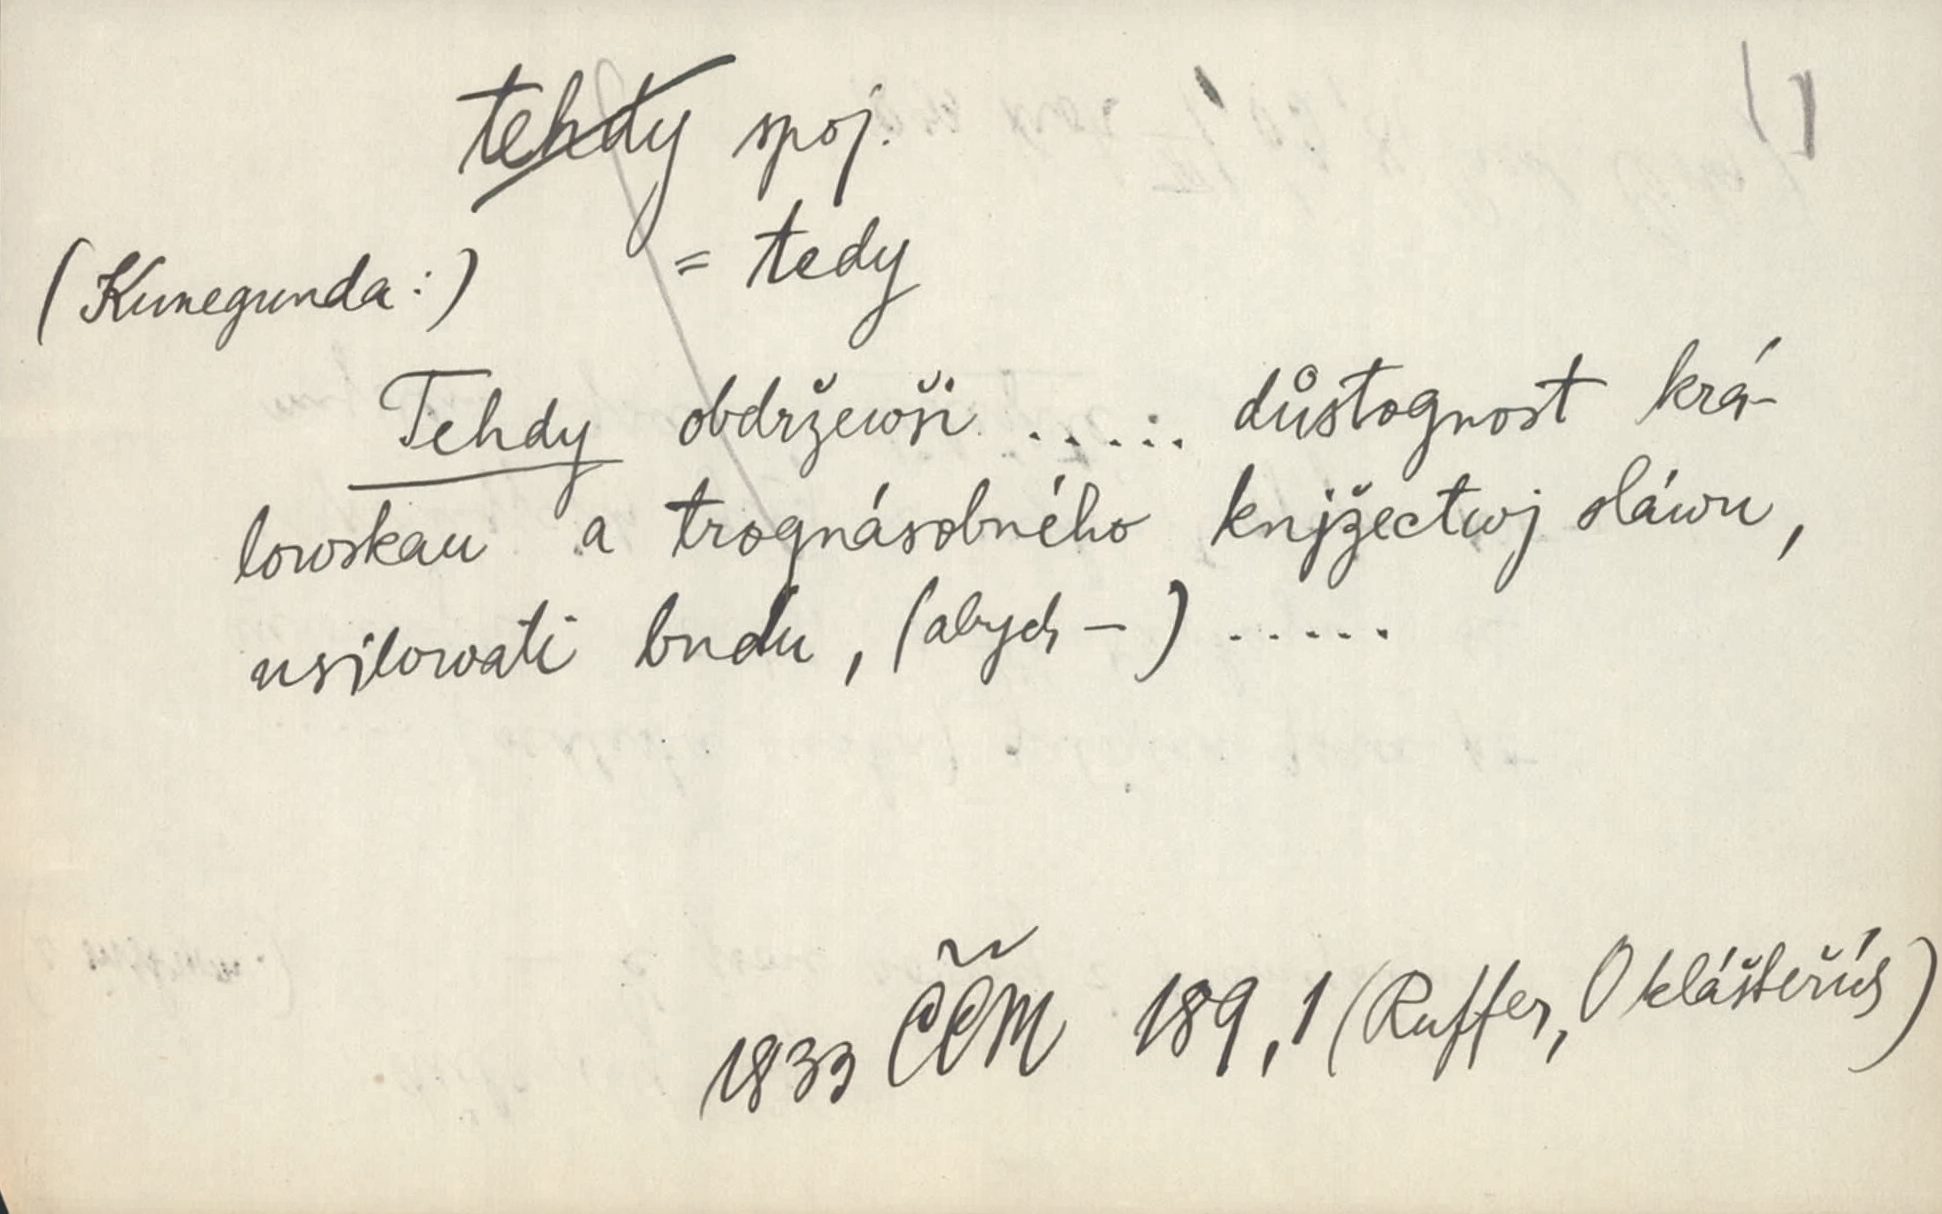 tehdy spoj.
= tedy
(Kunegunda:)
Tehdy obdrževši ..... důstognost krá-
lowskau a trognásobného knjžectwj sláwu,
usilowati budu, (abych –) .....
1833 ČČM 189,1 (Ruffer, O klášteřích)